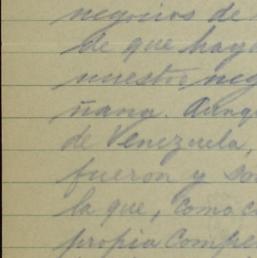 negocios de
de que haya
nuestros neg
ñana. Aunq
de Venezuela,
fueron y son
la que, como c
propia Compe